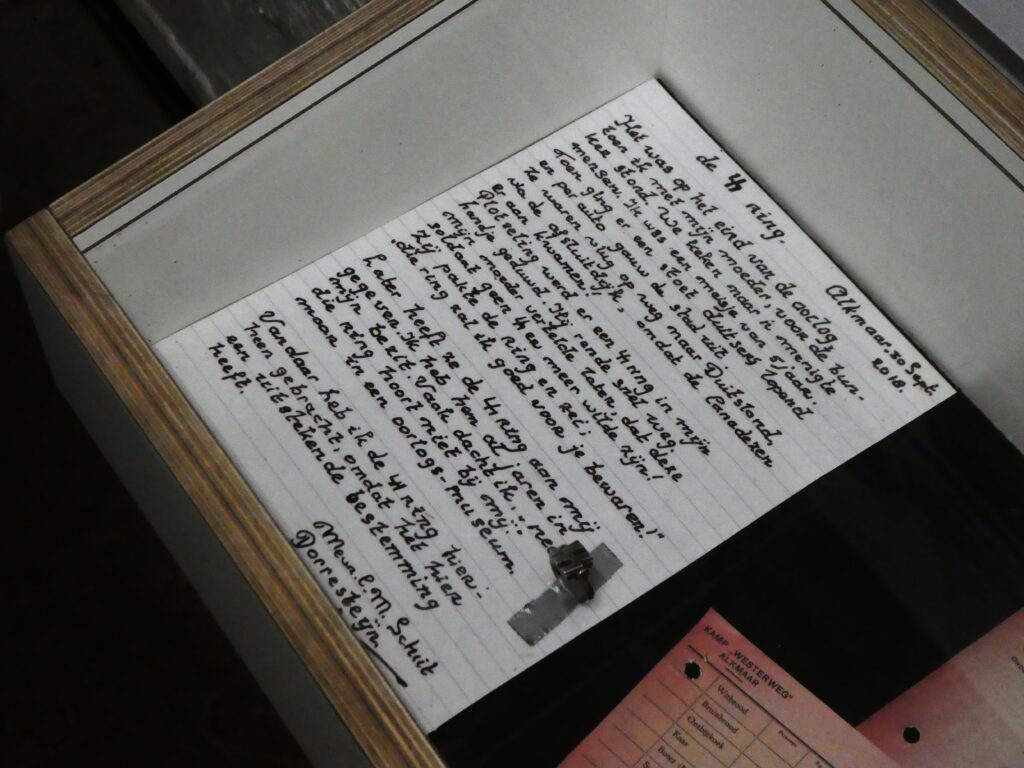 Alkmaar. 30 Sept.
2018.
de ᛋᛋ ring.
Het was op het eind van de oorlog,
toen ik met mijn moeder, voor de bun-
ker stond. We keken naar 'n menigte
mensen. Ik was een meisje van 5 jaar,
Toen ging er een stoet duitsers lopend
en per auto gauw de stad uit
Ze waren vlug op weg naar Duitsland,
via de afsluitdijk, omdat de Canadezen
er aan kwamen!
Plotseling werd er een ᛋᛋ ring in mijn
handje geduwd. Hij rende snel weg.
mijn moeder vertelde later dat deze
soldaat geen ᛋᛋ er meer wilde zijn!
Zij pakte de ring en zei;
die ring zal ik goed voor je bewaren!"
Later heeft ze de ᛋᛋ ring aan mij
gegeven. Ik heb hem al jaren in
mijn bezit. Vaak dacht ik...
die ring hoort niet bij mij,
maar in een oorlogs-museum.
Vandaar heb ik de ᛋᛋ ring hier.
heen gebracht, omdat het hier
een uitstekende bestemming
heeft.
M. Schuit
Dorresteijn
KAMP „WESTERWEG"
ALKMAAR
Witbrood
Bruinbrood
Ontbijtkoek
Kaas
Boter